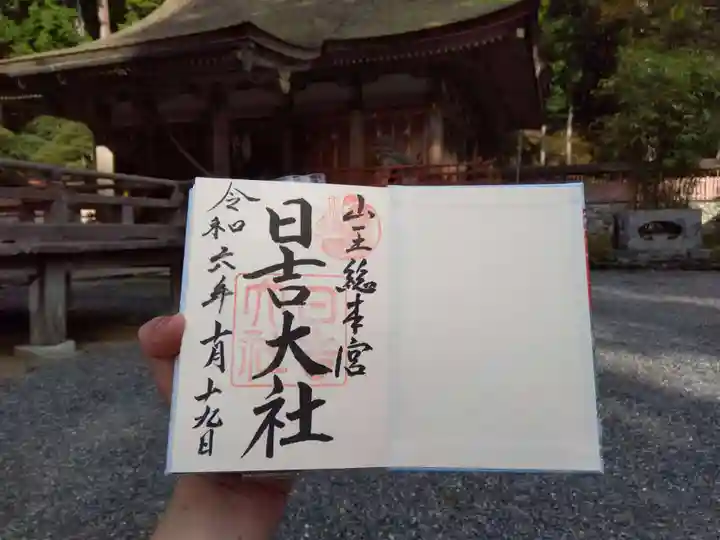 山王総本宮
日吉大社
令和六年十月十九日